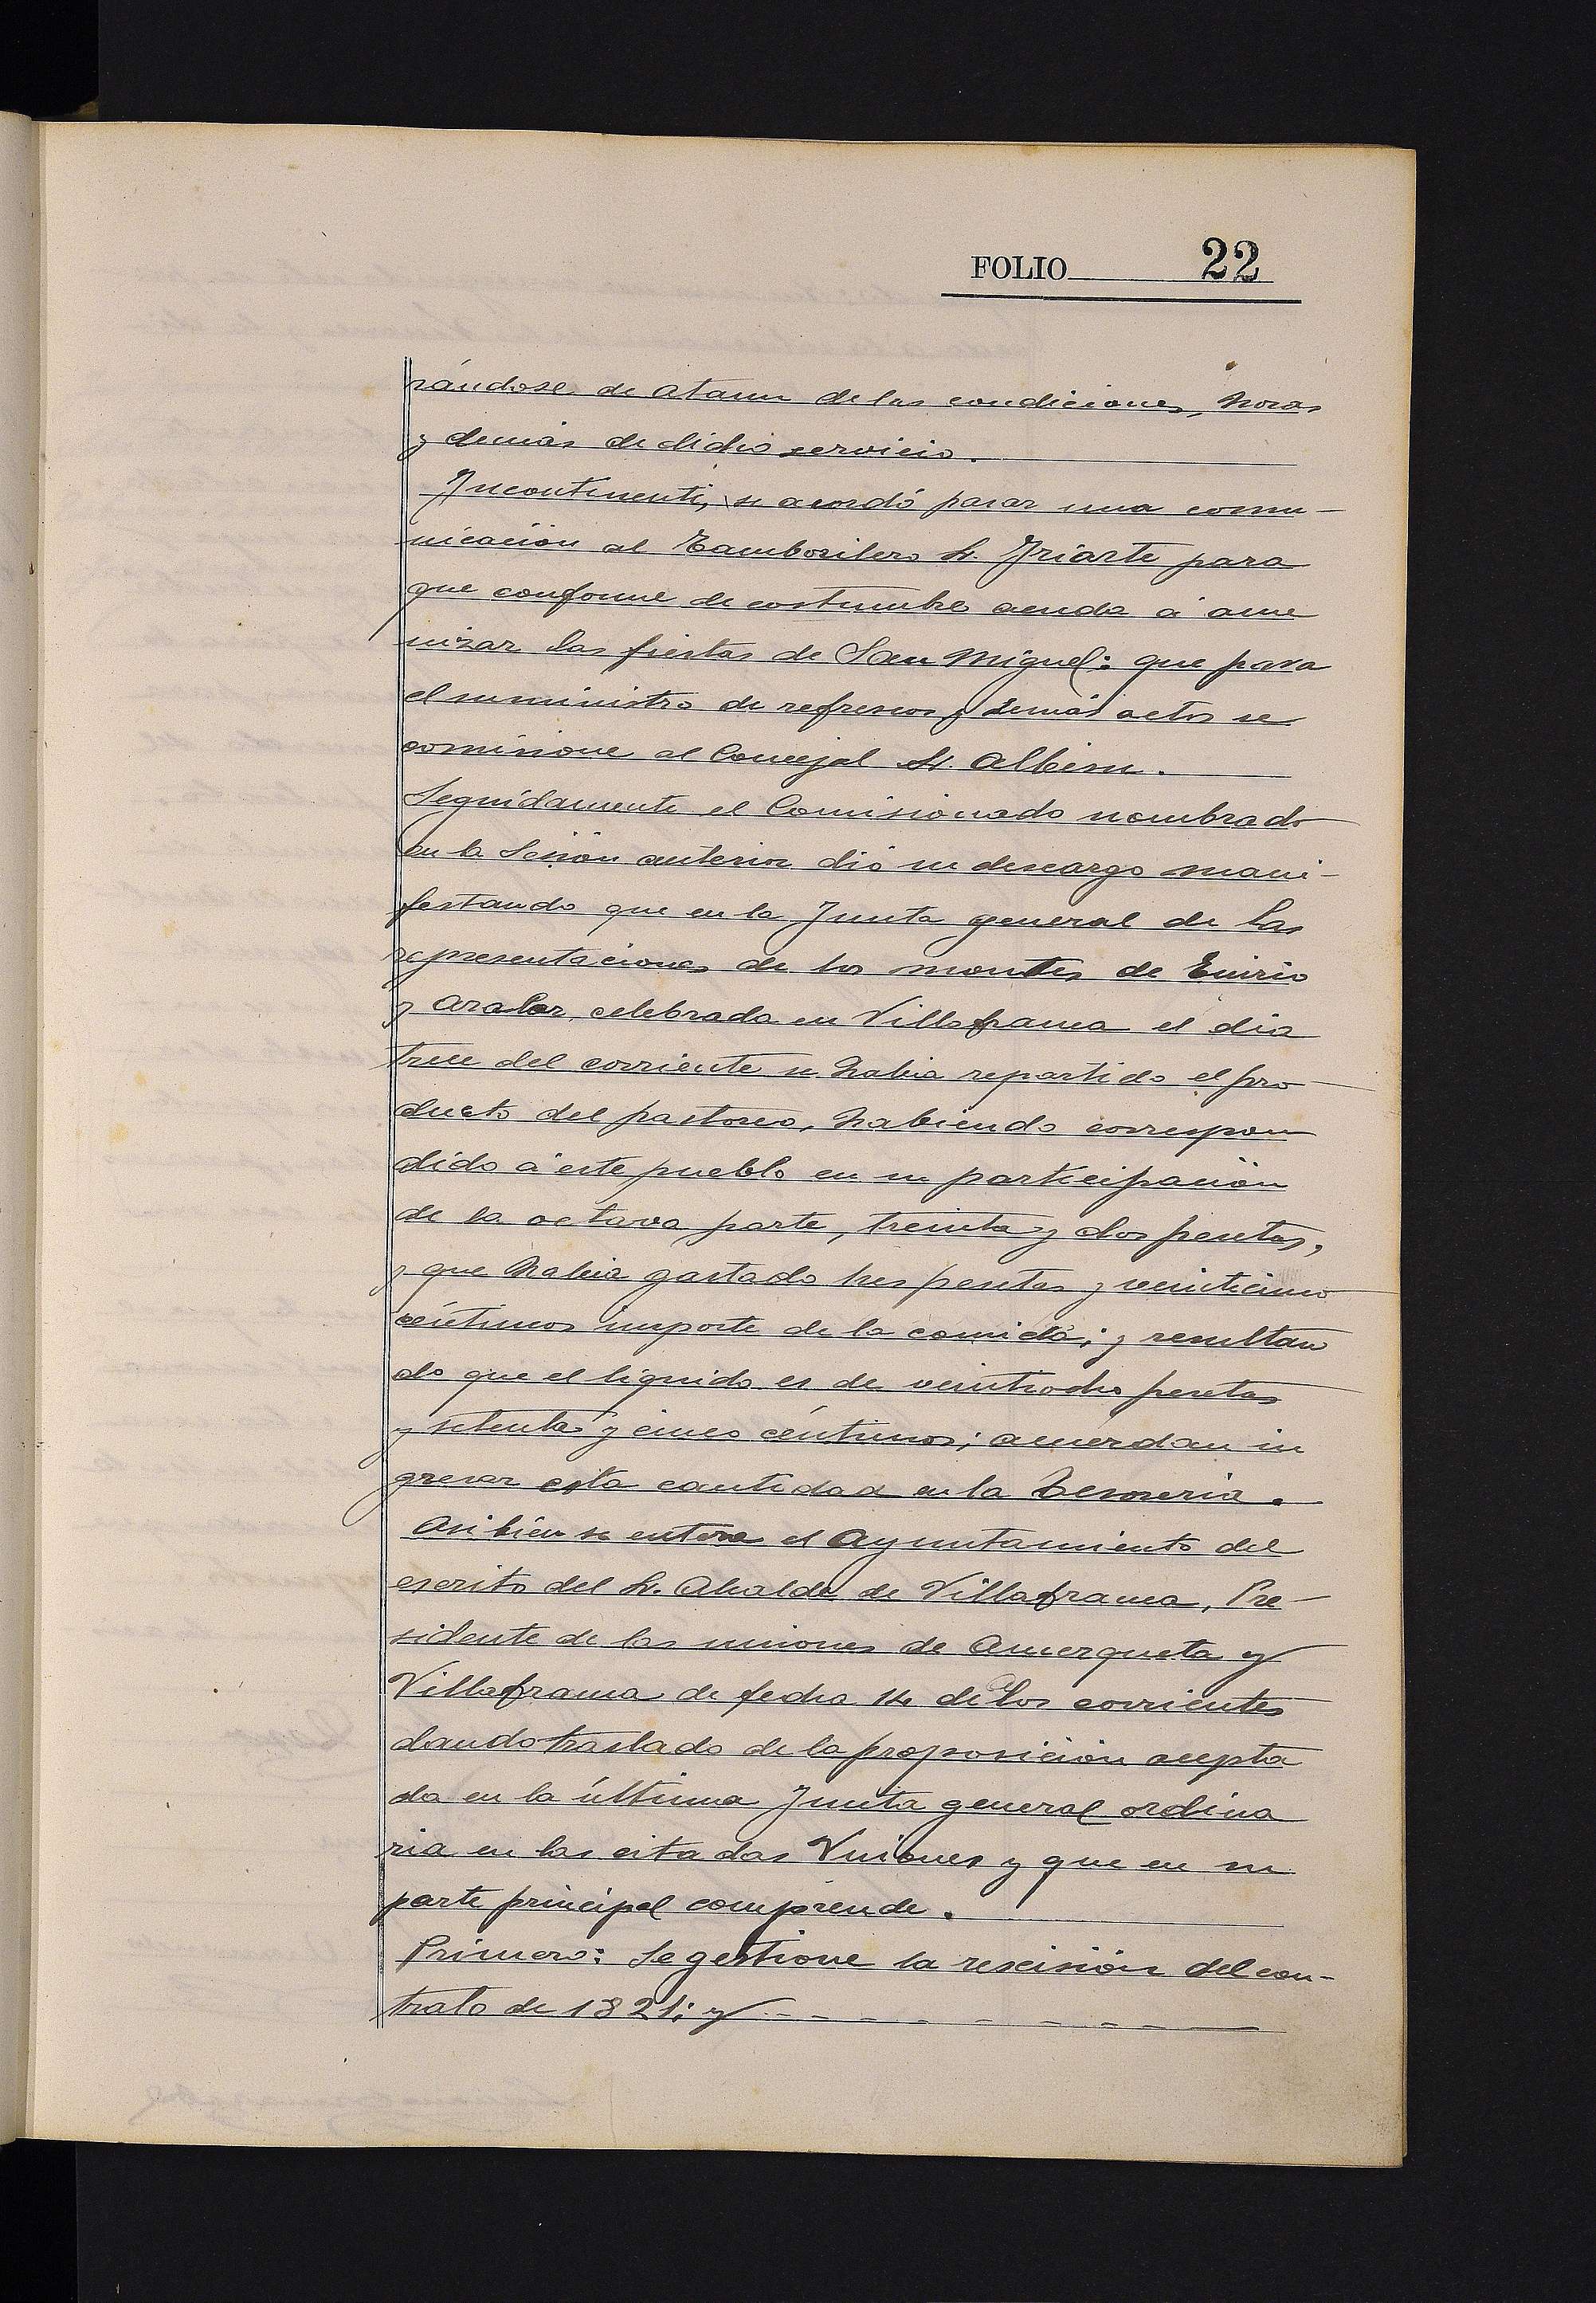 FOLIO 22
rándose de Ataun de las condiciones, horas
y demás de dicho servicio.
Incontinenti, se acordó pasar una comu-
nicación al Tamborilero Sr. Iriarte para
que conforme de costumbre acuda á ame
nizar las fiestas de San Miguel: que para
el suministro de refrescos y demás actos se
comisione al Concejal Sr. Albisu.
Seguidamente el Comisionado nombrado
en la Sesión anterior dió su descargo mani-
festando que en la Junta general de las
representaciones de los montes de Enirio
y Aralar, celebrada en Villafranca el dia
trece del corriente se habia repartido el pro
ducto del pastoreo, habiendo correspon
dido á este pueblo en su participación
de la octava parte, treinta y dos pesetas,
y que habia gastado tres pesetas y veinticinco
céntimos importe de la comida; y resultan
do que el líquido es de veintiocho pesetas
y setenta y cinco céntimos; acuerdan in
gresar esta cantidad en la Tesoreria.
Asi bien se entera el Ayuntamiento del
escrito del Sr. Alcalde de Villafranca, Pre-
sidente de las uniones de Amezqueta y
Villafranca de fecha 14 de los corrientes
dando traslado de la proposición acepta
da en la última Junta general ordina
ria en las citadas Uniones y que en su
parte principal comprende.
Primero: Se gestione la rescisión del con-
trato de 1821; y